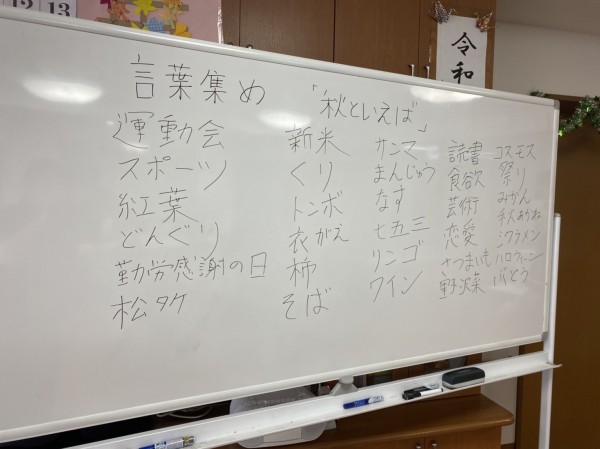 12 13
令和
言葉集め 「秋といえば」
運動会
スポーツ
紅葉
どんぐり
勤労感謝の日
松タケ
新米
くり
トンボ
衣がえ
柿
そば
サンマ
まんじゅう
なす
七五三
リンゴ
ワイン
読書
食欲
芸術
恋愛
さつまいも
野沢菜
コスモス
祭り
みかん
秋あかね
シクラメン
ハロウィーン
ぶどう